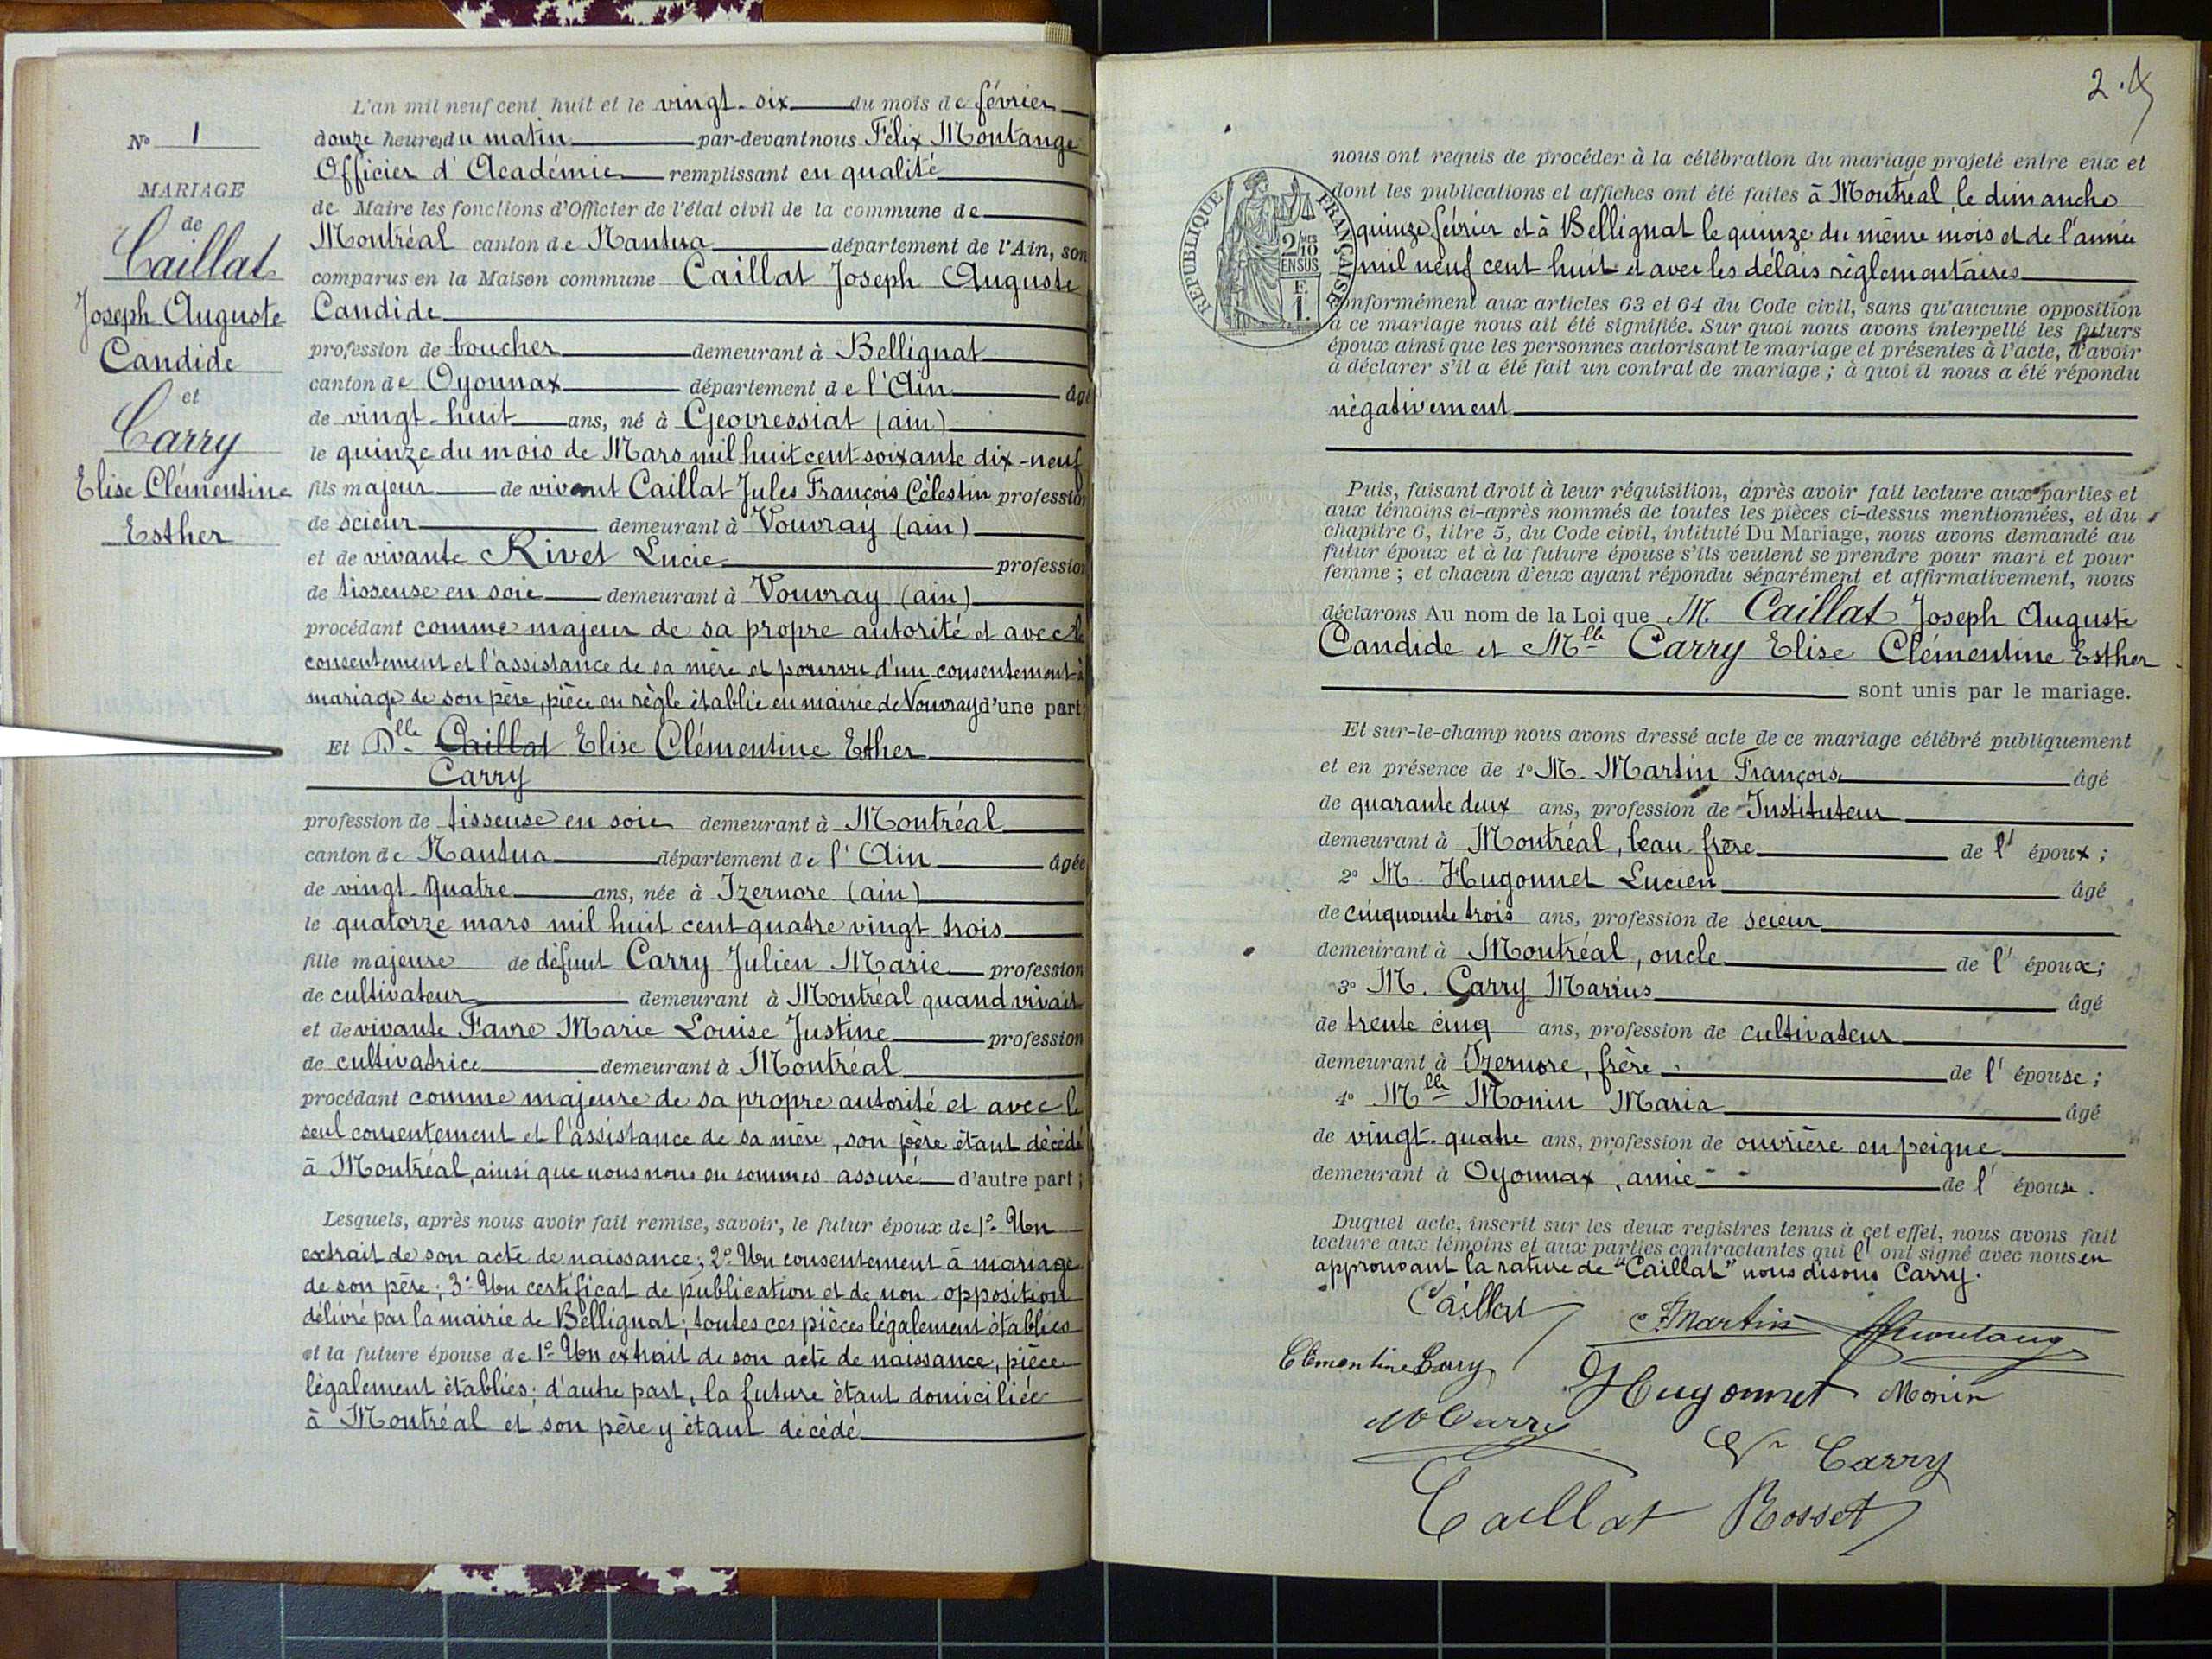 L'an mil neuf cent huit et le vingt-six du mois de février
No 1
douze heures du matin par-devant nous Félix Montange
Officier d'Académie remplissant en qualité
MARIAGE
de Maire les fonctions d'Officier de l'état civil de la commune de
de
Caillat
Joseph Auguste
Candide
et
Carry
Elise Clémentine
Esther
Montréal canton de Nantua département de l'Ain, son
comparus en la Maison commune Caillat Joseph Auguste
Candide
profession de boucher demeurant à Bellignat
canton de Oyonnax département de l'Ain âgé
de vingt-huit ans, né à Geovressiat (ain)
le quinze du mois de Mars mil huit cent soixante dix-neuf
fils majeur de vivant Caillat Jules François Célestin profession
de scieur demeurant à Vouvray (ain)
et de vivante Rivet Lucie profession
de tisseuse en soie demeurant à Vouvray (ain)
procédant comme majeur de sa propre autorité et avec le
consentement et l'assistance de sa mère et pourvu d'un consentement à
mariage de son père, pièce en règle établie en mairie de Vouvray d'une part;
Et Dlle Caillat Elise Clémentine Esther
Carry
profession de tisseuse en soie demeurant à Montréal
canton de Nantua département de l'Ain âgée
de vingt-quatre ans, née à Izernore (ain)
le quatorze mars mil huit cent quatre vingt trois
fille majeure de défunt Carry Julien Marie profession
de cultivateur demeurant à Montréal quand vivait
et de vivante Favre Marie Louise Justine profession
de cultivatrice demeurant à Montréal
procédant comme majeure de sa propre autorité et avec le
seul consentement et l'assistance de sa mère, son père étant décédé
à Montréal, ainsi que nous nous en sommes assuré d'autre part;
Lesquels, après nous avoir fait remise, savoir, le futur époux de 1º Un
extrait de son acte de naissance; 2º Un consentement à mariage
de son père; 3º Un certificat de publication et de non-opposition
délivré par la mairie de Bellignat; toutes ces pièces légalement établies
et la future épouse de 1º Un extrait de son acte de naissance, pièce
légalement établies; d'autre part, la future étant domiciliée
à Montréal et son père y étant décédé
2.
nous ont requis de procéder à la célébration du mariage projeté entre eux et
dont les publications et affiches ont été faites à Montréal le dimanche
quinze février et à Bellignat le quinze du même mois et de l'année
mil neuf cent huit et avec les délais règlementaires
RÉPUBLIQUE FRANÇAISE
2/10
EN SUS
F.
1.
conformément aux articles 63 et 64 du Code civil, sans qu'aucune opposition
à ce mariage nous ait été signifiée. Sur quoi nous avons interpellé les futurs
époux ainsi que les personnes autorisant le mariage et présentes à l'acte, d'avoir
à déclarer s'il a été fait un contrat de mariage; à quoi il nous a été répondu
négativement
Puis, faisant droit à leur réquisition, après avoir fait lecture aux parties et
aux témoins ci-après nommés de toutes les pièces ci-dessus mentionnées, et du
chapitre 6, titre 5, du Code civil, intitulé Du Mariage, nous avons demandé au
futur époux et à la future épouse s'ils veulent se prendre pour mari et pour
femme; et chacun d'eux ayant répondu séparément et affirmativement, nous
déclarons Au nom de la Loi que M. Caillat Joseph Auguste
Candide et Mlle Carry Elise Clémentine Esther
sont unis par le mariage.
Et sur-le-champ nous avons dressé acte de ce mariage célébré publiquement
et en présence de 1º M. Martin François âgé
de quarante deux ans, profession de Instituteur
demeurant à Montréal, beau frère de l' époux;
2º M. Hugonnet Lucien âgé
de cinquante trois ans, profession de scieur
demeurant à Montréal, oncle de l' époux;
3º M. Carry Marius âgé
de trente cinq ans, profession de cultivateur
demeurant à Izernore, frère de l' épouse;
4º Mlle Monin Maria âgé
de vingt-quatre ans, profession de ouvrière en peigne
demeurant à Oyonnax, amie de l' épouse.
Duquel acte, inscrit sur les deux registres tenus à cet effet, nous avons fait
lecture aux témoins et aux parties contractantes qui l' ont signé avec nous en
approuvant la rature de "Caillat" nous disons Carry.
Caillat
F. Martin Montange
Clémentine Carry
Hugonnet Monin
M Carry
Vve Carry
Caillat Rosset